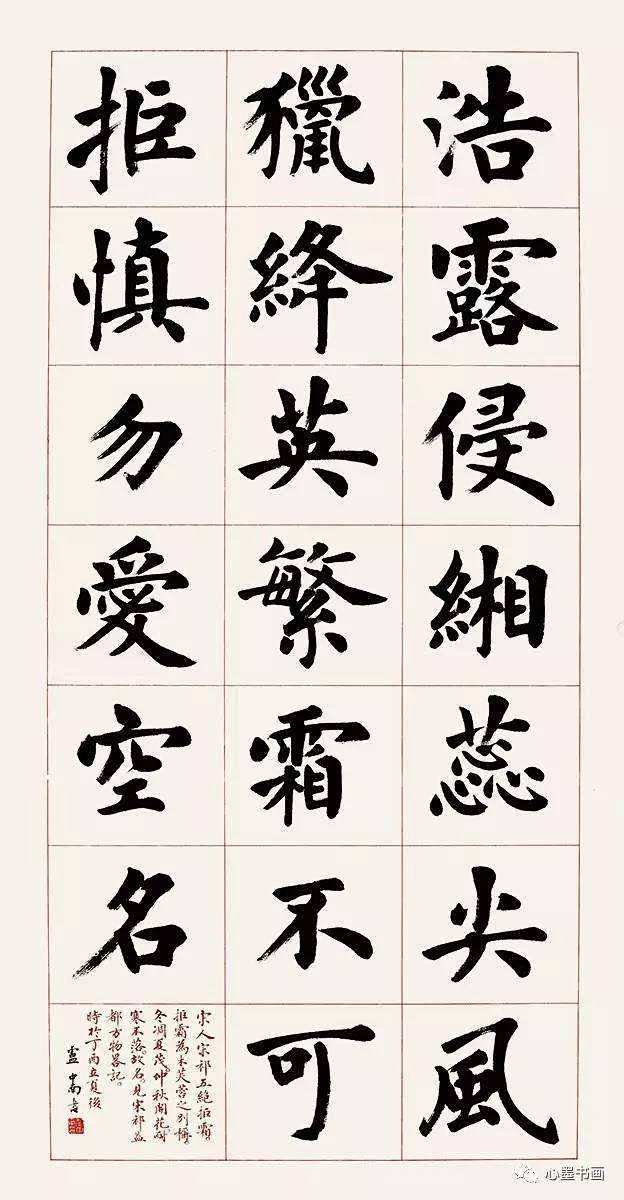 浩露侵緗蕊尖風
獵絳英繁霜不可
拒慎勿愛空名
宋人宋祁五絕拒霜。
拒霜為木芙蓉之別稱。
冬凋夏茂，仲秋開花，耐
寒不落，故名。見宋祁益
都方物畧記。
時於丁酉立夏後
盧中南書
心墨书画